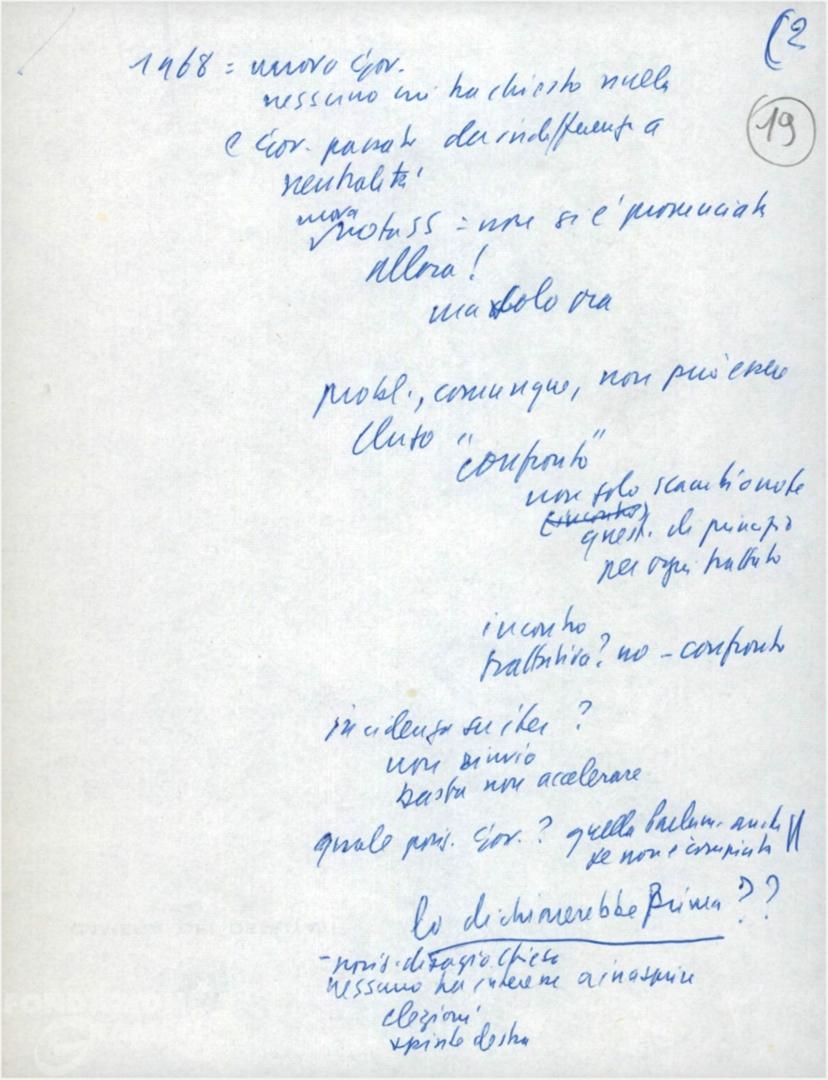 (2
19
1968 = nuovo Gov.
nessuno mi ha chiesto nulla
e Gov. passato da indifferenza a
neutralità
nuova
nota SS = non si è pronunciata
allora!
ma solo ora
probl., comunque, non può essere
eluso "confronto"
non solo scambio note
(incontro)
quest. di principio
per ogni trattato
incontro
trattativa? no - confronto
incidenza su iter ?
non rinvio
basta non accelerare
quale posis. Gov. ? quella Parlam. anche
se non è compiuta
lo dichiarerebbe prima ??
- disagio chiesa
nessuno ha interesse a inasprire
elezioni
spinte destra